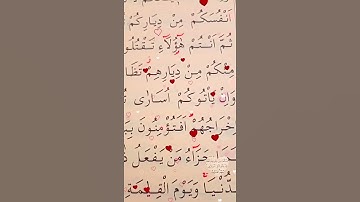 اَنْفُسَكُمْ مِنْ دِيَارِكُمْ
ثُمَّ اَنْتُمْ هٰٓؤُلَٓاءِ تَقْتُلُو
مِنْكُمْ مِنْ دِيَارِهِمْ تَظَا
وَاِنْ يَأْتُوكُمْ اُسَارٰى
خْرَاجُهُمْ اَفَتُؤْمِنُونَ بِبَ
مَا جَزَٓاءُ مَنْ يَفْعَلُ
لدُّنْيَا وَيَوْمَ الْقِيٰمَةِ